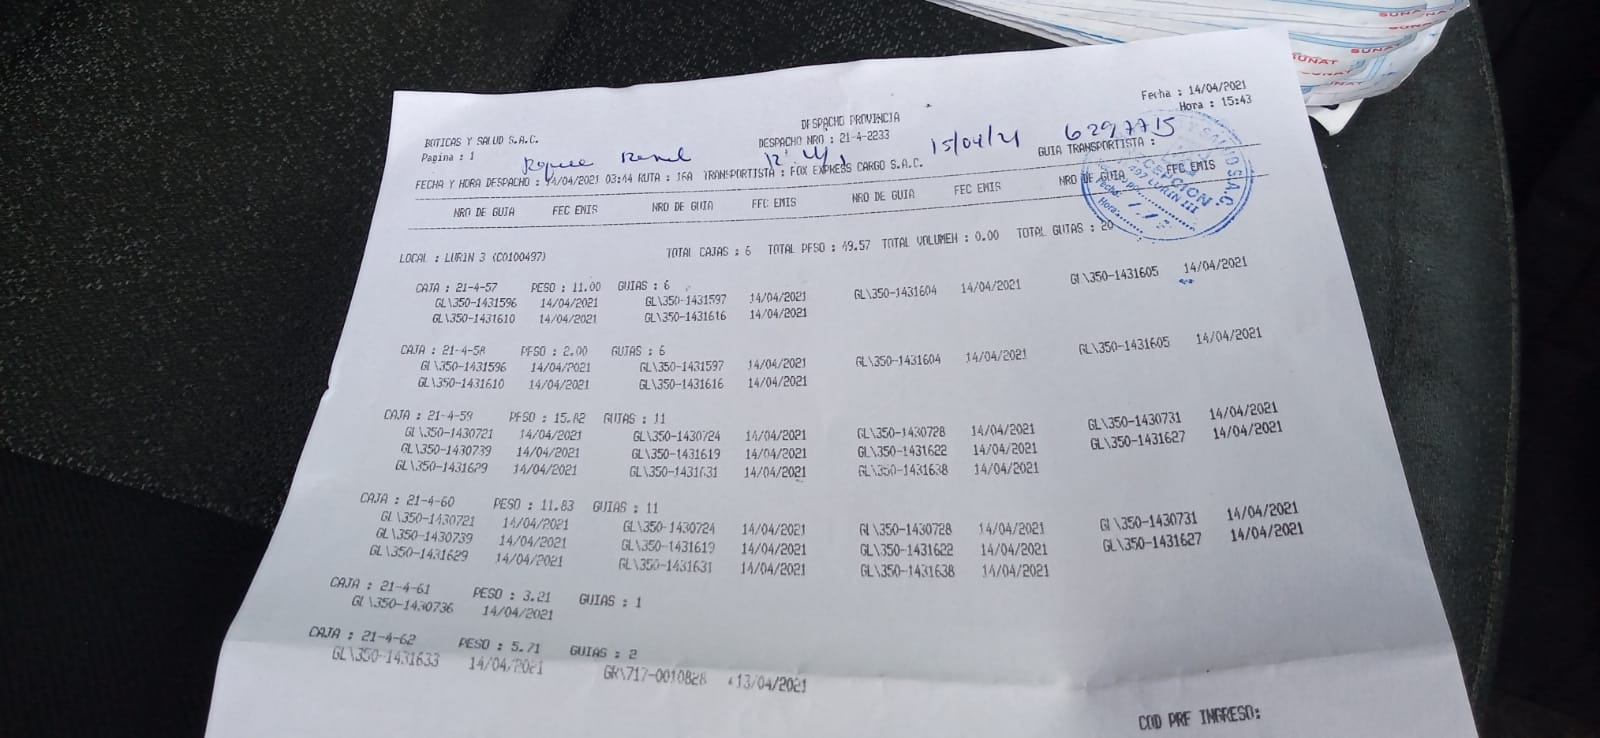 SUNAT
SUNAT
SUNAT
Fecha : 14/04/2021
Hora : 15:43
DESPACHO PROVINCIA
BOTICAS Y SALUD S.A.C.
DESPACHO NRO : 21-4-2233
Pagina : 1
15/04/21 6297715
GUIA TRANSPORTISTA :
FECHA Y HORA DESPACHO : 14/04/2021 03:44 RUTA : 16A TRANSPORTISTA : FOX EXPRESS CARGO S.A.C.
NRO DE GUIA FEC EMIS NRO DE GUIA FFC EMIS NRO DE GUIA FEC EMIS NRO DE GUIA FFC EMIS
RECEPCION
LURIN III
Fecha:
Hora:
S.A.C.
LOCAL : LURIN 3 (C0100497) TOTAL CAJAS : 6 TOTAL PESO : 49.57 TOTAL VOLUMEN : 0.00 TOTAL GUIAS : 20
CAJA : 21-4-57 PESO : 11.00 GUIAS : 6
GL\350-1431596 14/04/2021 GL\350-1431597 14/04/2021 GL\350-1431604 14/04/2021 GL\350-1431605 14/04/2021
GL\350-1431610 14/04/2021 GL\350-1431616 14/04/2021
CAJA : 21-4-58 PESO : 2.00 GUIAS : 6
GL\350-1431596 14/04/2021 GL\350-1431597 14/04/2021 GL\350-1431604 14/04/2021 GL\350-1431605 14/04/2021
GL\350-1431610 14/04/2021 GL\350-1431616 14/04/2021
CAJA : 21-4-59 PESO : 15.82 GUIAS : 11
GL\350-1430721 14/04/2021 GL\350-1430724 14/04/2021 GL\350-1430728 14/04/2021 GL\350-1430731 14/04/2021
GL\350-1430739 14/04/2021 GL\350-1431619 14/04/2021 GL\350-1431622 14/04/2021 GL\350-1431627 14/04/2021
GL\350-1431629 14/04/2021 GL\350-1431631 14/04/2021 GL\350-1431638 14/04/2021
CAJA : 21-4-60 PESO : 11.83 GUIAS : 11
GL\350-1430721 14/04/2021 GL\350-1430724 14/04/2021 GL\350-1430728 14/04/2021 GL\350-1430731 14/04/2021
GL\350-1430739 14/04/2021 GL\350-1431619 14/04/2021 GL\350-1431622 14/04/2021 GL\350-1431627 14/04/2021
GL\350-1431629 14/04/2021 GL\350-1431631 14/04/2021 GL\350-1431638 14/04/2021
CAJA : 21-4-61 PESO : 3.21 GUIAS : 1
GL\350-1430736 14/04/2021
CAJA : 21-4-62 PESO : 5.71 GUIAS : 2
GL\350-1431633 14/04/2021 GR\717-0010828 13/04/2021
COD PRF INGRESO: